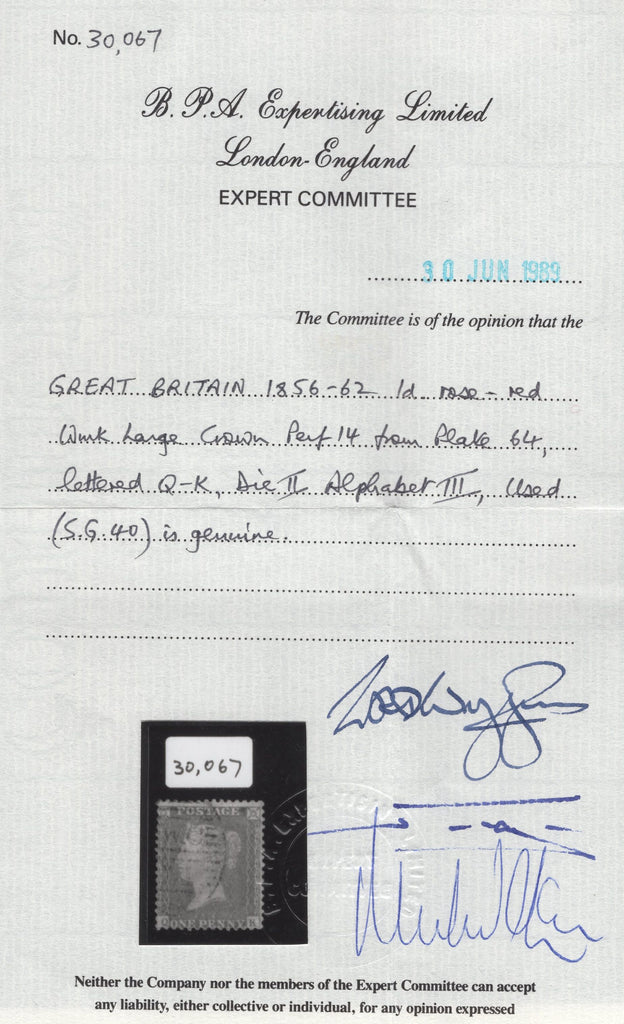 No. 30,067
B. P. A. Expertising Limited
London-England
EXPERT COMMITTEE
30 JUN 1989
The Committee is of the opinion that the
GREAT BRITAIN 1856-62 1d. rose-red
Wmk Large Crown Perf 14 from Plate 64,
lettered Q-K, Die II Alphabet III, Used
(S.G. 40) is genuine.
30,067
POSTAGE
Q ONE PENNY K
Neither the Company nor the members of the Expert Committee can accept
any liability, either collective or individual, for any opinion expressed